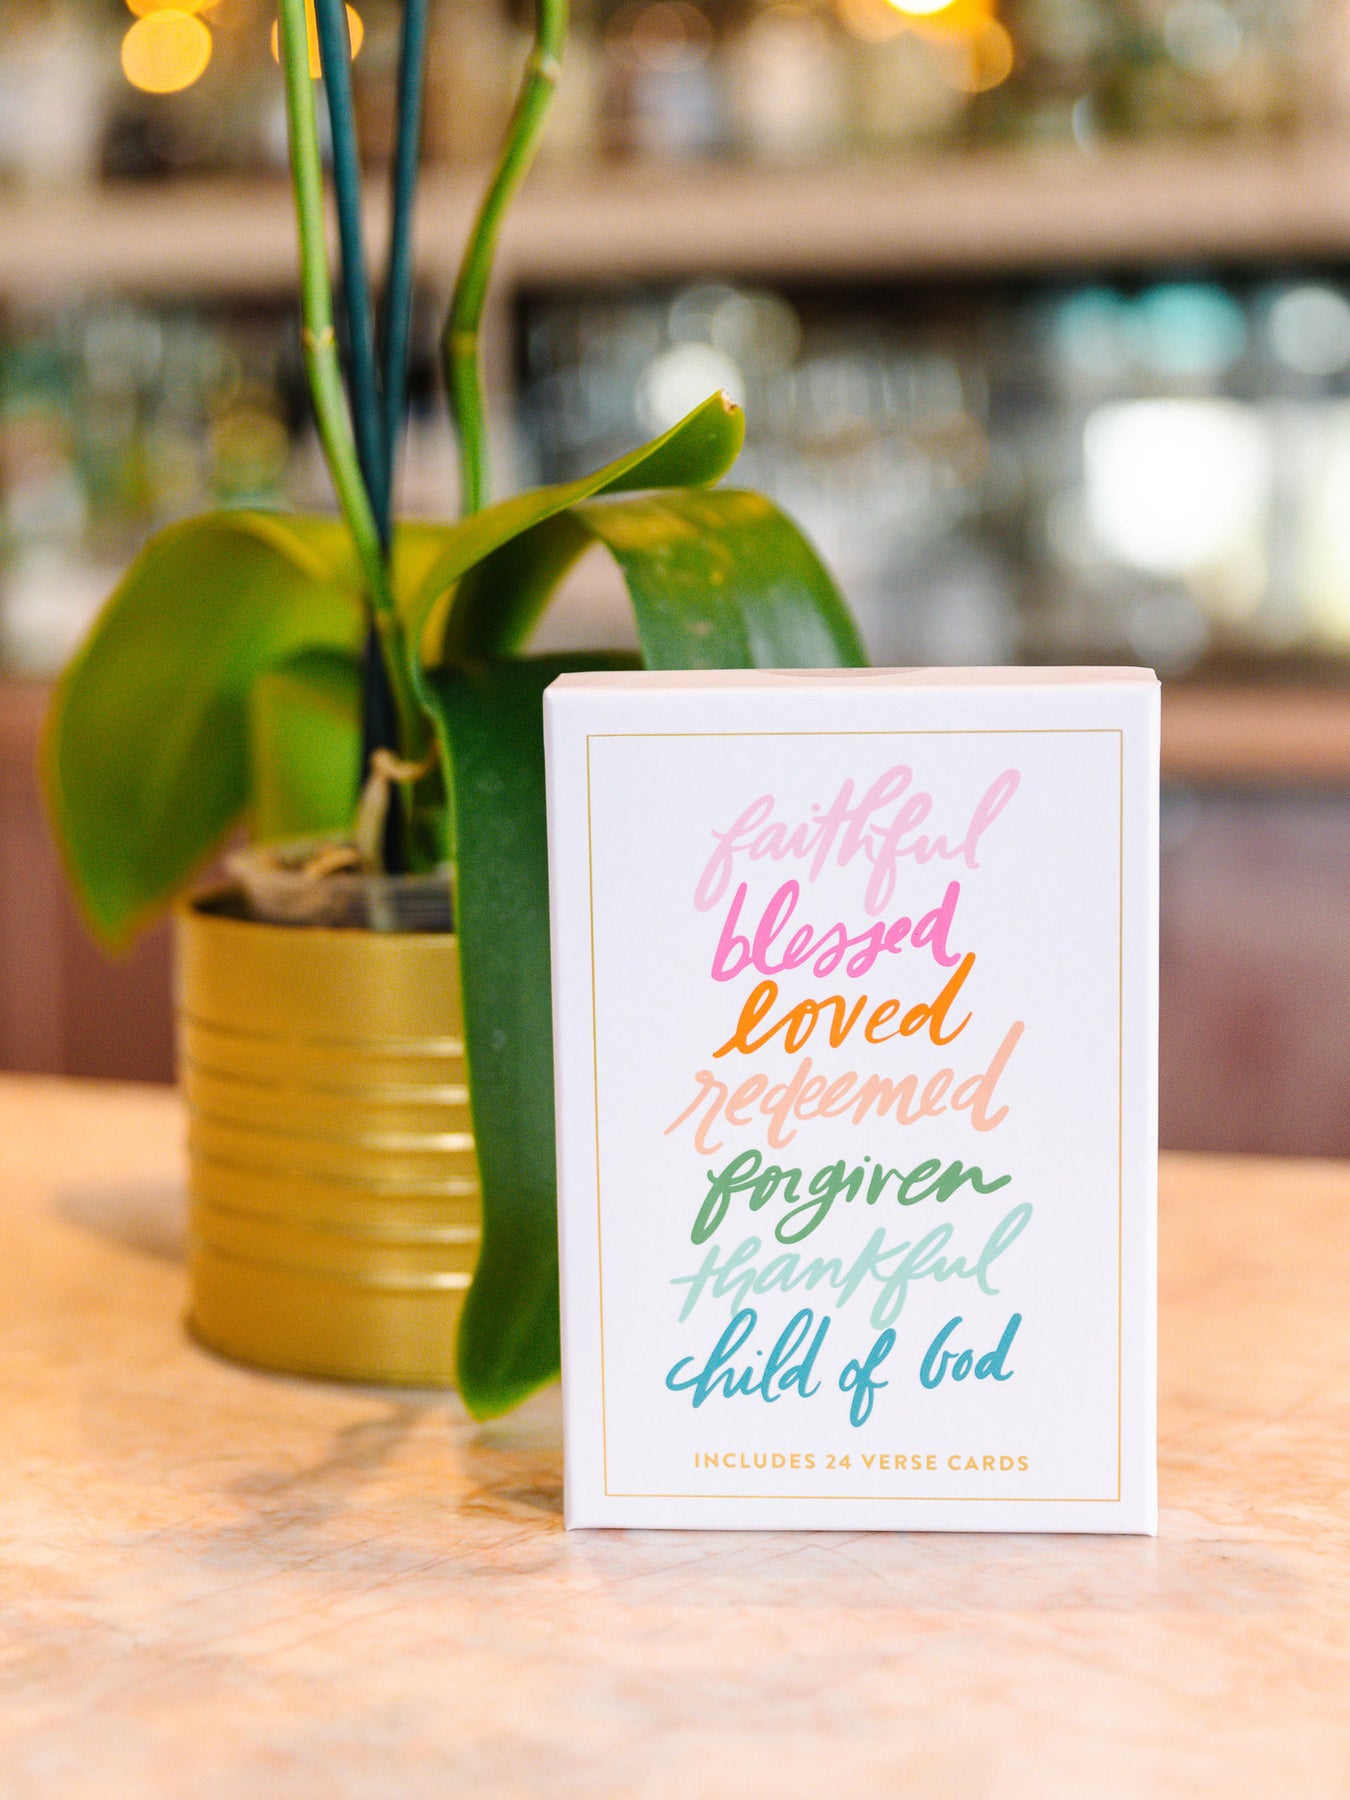 faithful
blessed
loved
redeemed
forgiven
thankful
child of God
INCLUDES 24 VERSE CARDS